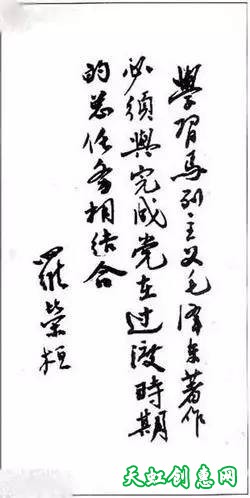 學習馬列主义毛澤东著作
必須與完成党在过渡時期
的总任务相结合
羅榮桓
天虹创意网